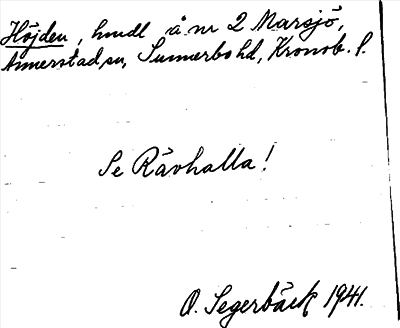 Höjden, hmdl å nr 2 Marsjö,
Annerstad sn, Sunnerbo hd, Kronob. l.
Se Rävhalla!
O. Segerbäck 1941.